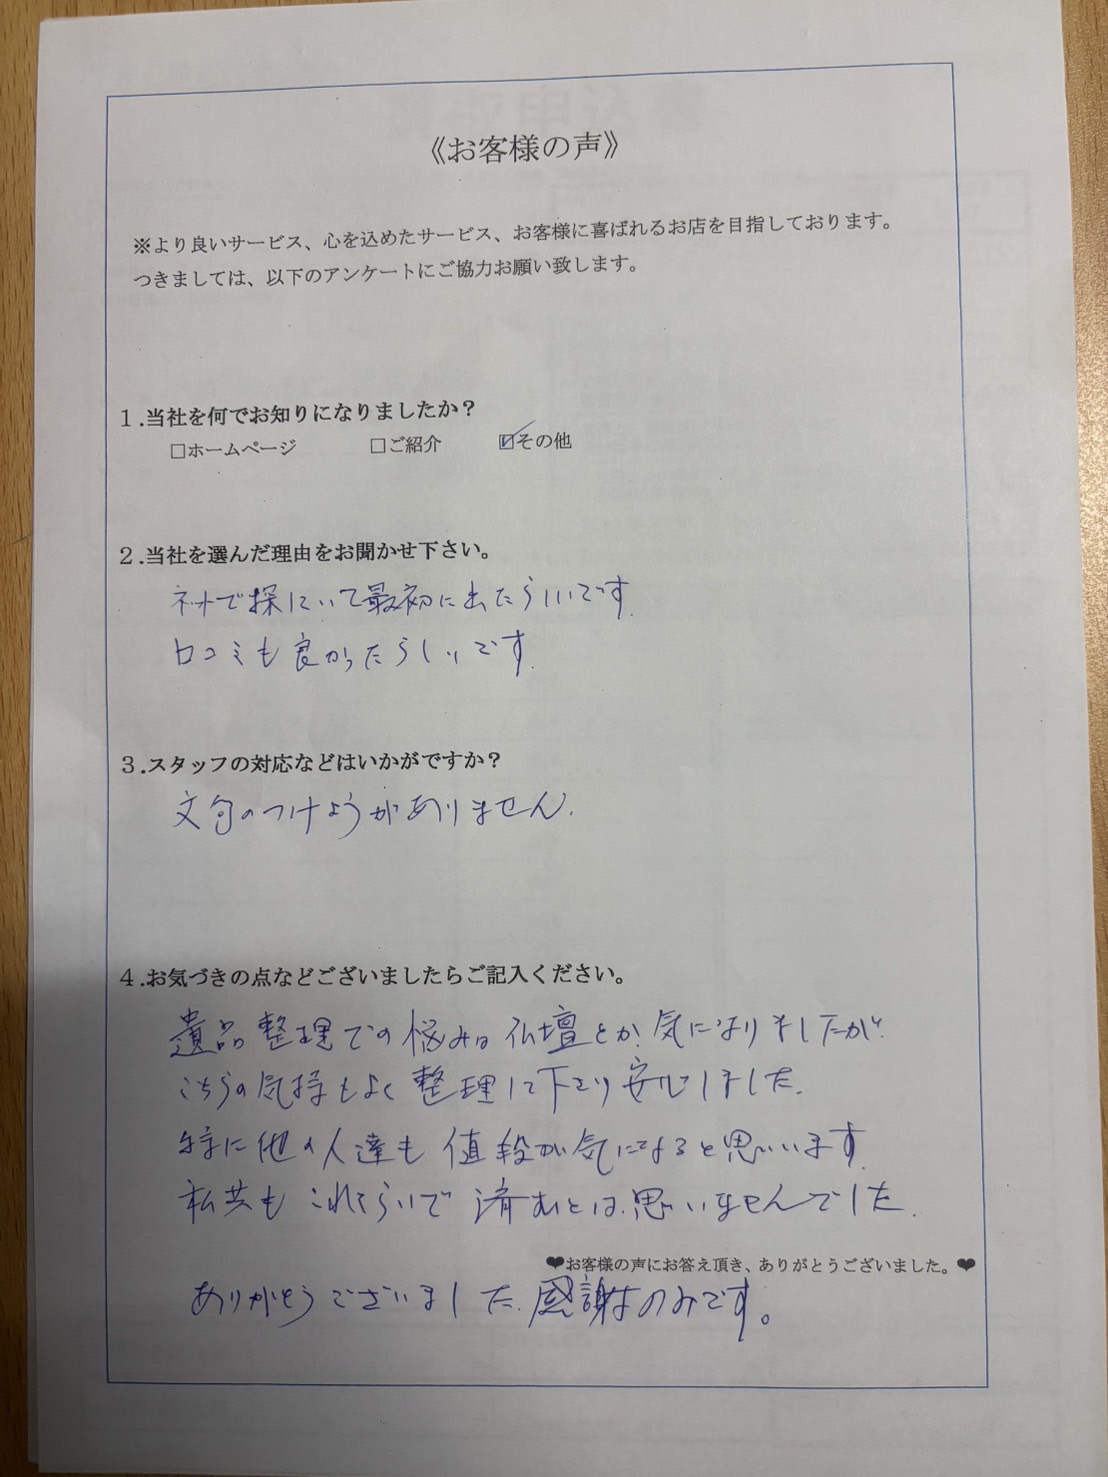 《お客様の声》
※より良いサービス、心を込めたサービス、お客様に喜ばれるお店を目指しております。
つきましては、以下のアンケートにご協力お願い致します。
１.当社を何でお知りになりましたか？
□ホームページ □ご紹介 ☑その他
２.当社を選んだ理由をお聞かせ下さい。
ネットで探していて最初に出たらしいです
口コミも良かったらしいです
３.スタッフの対応などはいかがですか？
文句のつけようがありません.
４.お気づきの点などございましたらご記入ください。
遺品整理での悩みは仏壇とか気になりましたが
こちらの気持もよく整理して下さり安心しました.
特に他の人達も値段が気になると思います
私共もこれくらいで済むとは思いませんでした.
❤お客様の声にお答え頂き、ありがとうございました。❤
ありがとうございました.感謝のみです。